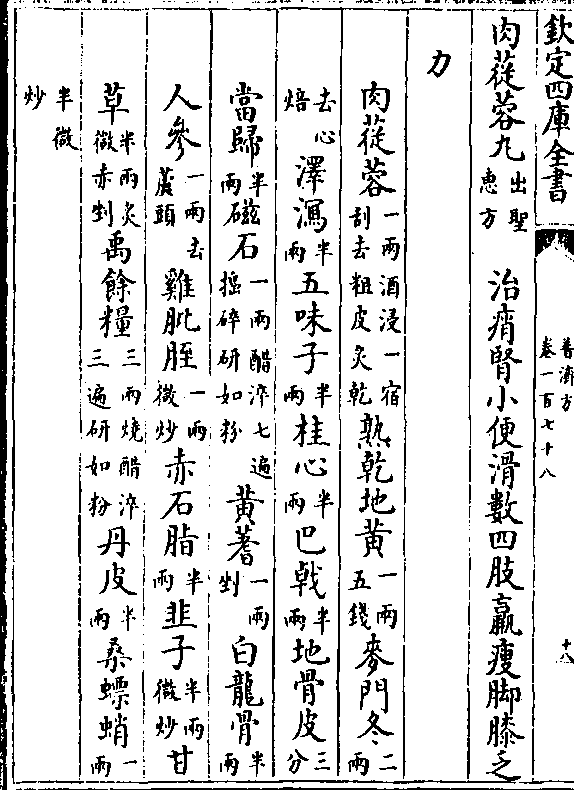 欽定四庫全書
普濟方
卷一百七十八
十八
肉蓯蓉丸出聖惠方 治痟腎小便滑數四肢羸瘦脚膝乏
力
肉蓯蓉一兩酒浸一宿刮去粗皮炙乾熟乾地黃一兩五錢麥門冬二兩
去心焙澤瀉半兩五味子半兩桂心半兩巴戟半兩地骨皮三分
當歸半兩磁石一兩醋淬七遍搗碎研如粉黃蓍一兩剉白龍骨半兩
人參一兩去蘆頭雞肶胵一兩微炒赤石脂半兩韭子半兩微炒甘
草半兩炙微赤剉禹餘糧三兩燒醋淬三遍研如粉丹皮半兩桑螵蛸一兩
半微炒